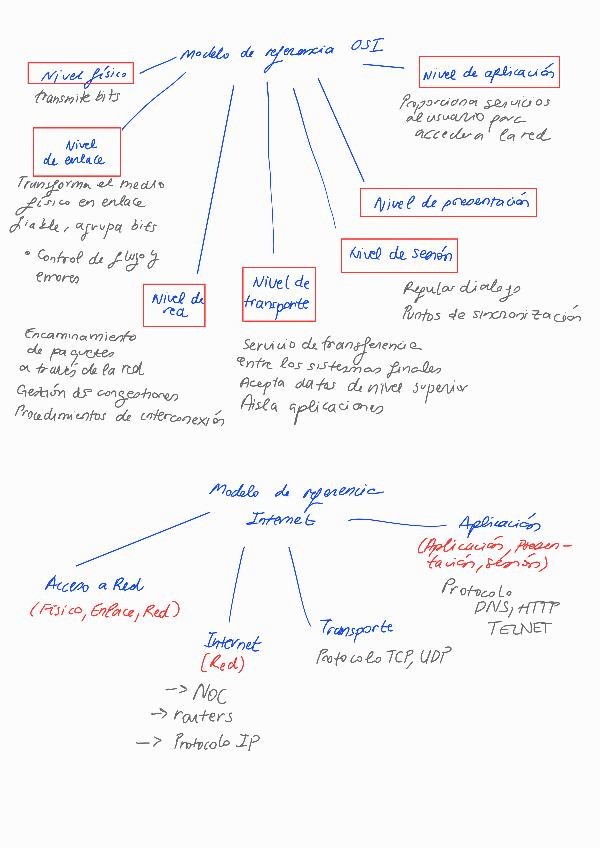 Modelo de referencia OSI
Nivel físico
transmite bits
Nivel
de enlace
Transforma el medio
físico en enlace
fiable, agrupa bits
• Control de flujo y
errores
Nivel de
red
Encaminamiento
de paquetes
a través de la red
Gestión de congestiones
Procedimientos de interconexión
Nivel de
transporte
Servicio de transferencia
entre los sistemas finales
Acepta datos de nivel superior
Aisla aplicaciones
Nivel de sesión
Regular dialogo
Puntos de sincronización
Nivel de presentación
Nivel de aplicación
Proporciona servicios
al usuario para
acceder a la red
Modelo de referencia
Internet
Acceso a Red
(Físico, Enlace, Red)
Internet
(Red)
-> NOC
-> routers
-> Protocolo IP
Transporte
Protocolo TCP, UDP
Aplicación
(Aplicación, Presen-
tación, Sesión)
Protocolo
DNS, HTTP
TELNET